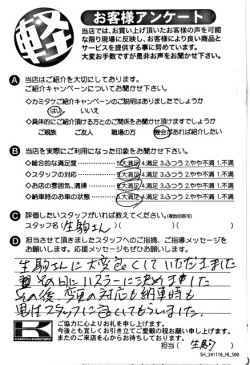 軽
お客様アンケート
当店では、お買い上げ頂いたお客様の声を可能
な限り現場に反映し、お客様により良い商品と
サービスを提供する事に努めています。
大変お手数ですが是非お声をお聞かせ下さい。
A 当店はご紹介を大切にしております。
ご紹介キャンペーンについてお聞かせ下さい。
◇カミタケご紹介キャンペーンのご説明はありましたでしょうか
はい いいえ
◇具体的にご紹介頂ける方とのご関係をお聞かせ頂けますでしょうか
ご親族 ご友人 職場の方 機会があれば紹介したい
B 当店を実際にご利用になった印象をお聞かせ下さい。
◇総合的な満足度 5.大満足 4.満足 3.ふつう 2.やや不満 1.不満
◇スタッフの対応 5.大満足 4.満足 3.ふつう 2.やや不満 1.不満
◇お店の雰囲気、清掃 5.大満足 4.満足 3.ふつう 2.やや不満 1.不満
◇納車時のお車の状態 5.大満足 4.満足 3.ふつう 2.やや不満 1.不満
C 評価したいスタッフがいれば教えてください。(複数回答可)
スタッフ名( 生駒さん )( )
D 担当させて頂きましたスタッフへのご指摘、ご指導メッセージを
お願いします。応援メッセージもぜひお願いします。
生駒さんに大変良くしていただきました
その日に ハスラーに決めました
その後、変更の対応も納車時も
K
ご協力に心よりお礼を申し上げます。
今後とも宜しくお引き立てご愛顧の程お願い申し上げます。
またのご来店を心からお待ちしております。
担当( 生駒 )
SH_241116_HI_500